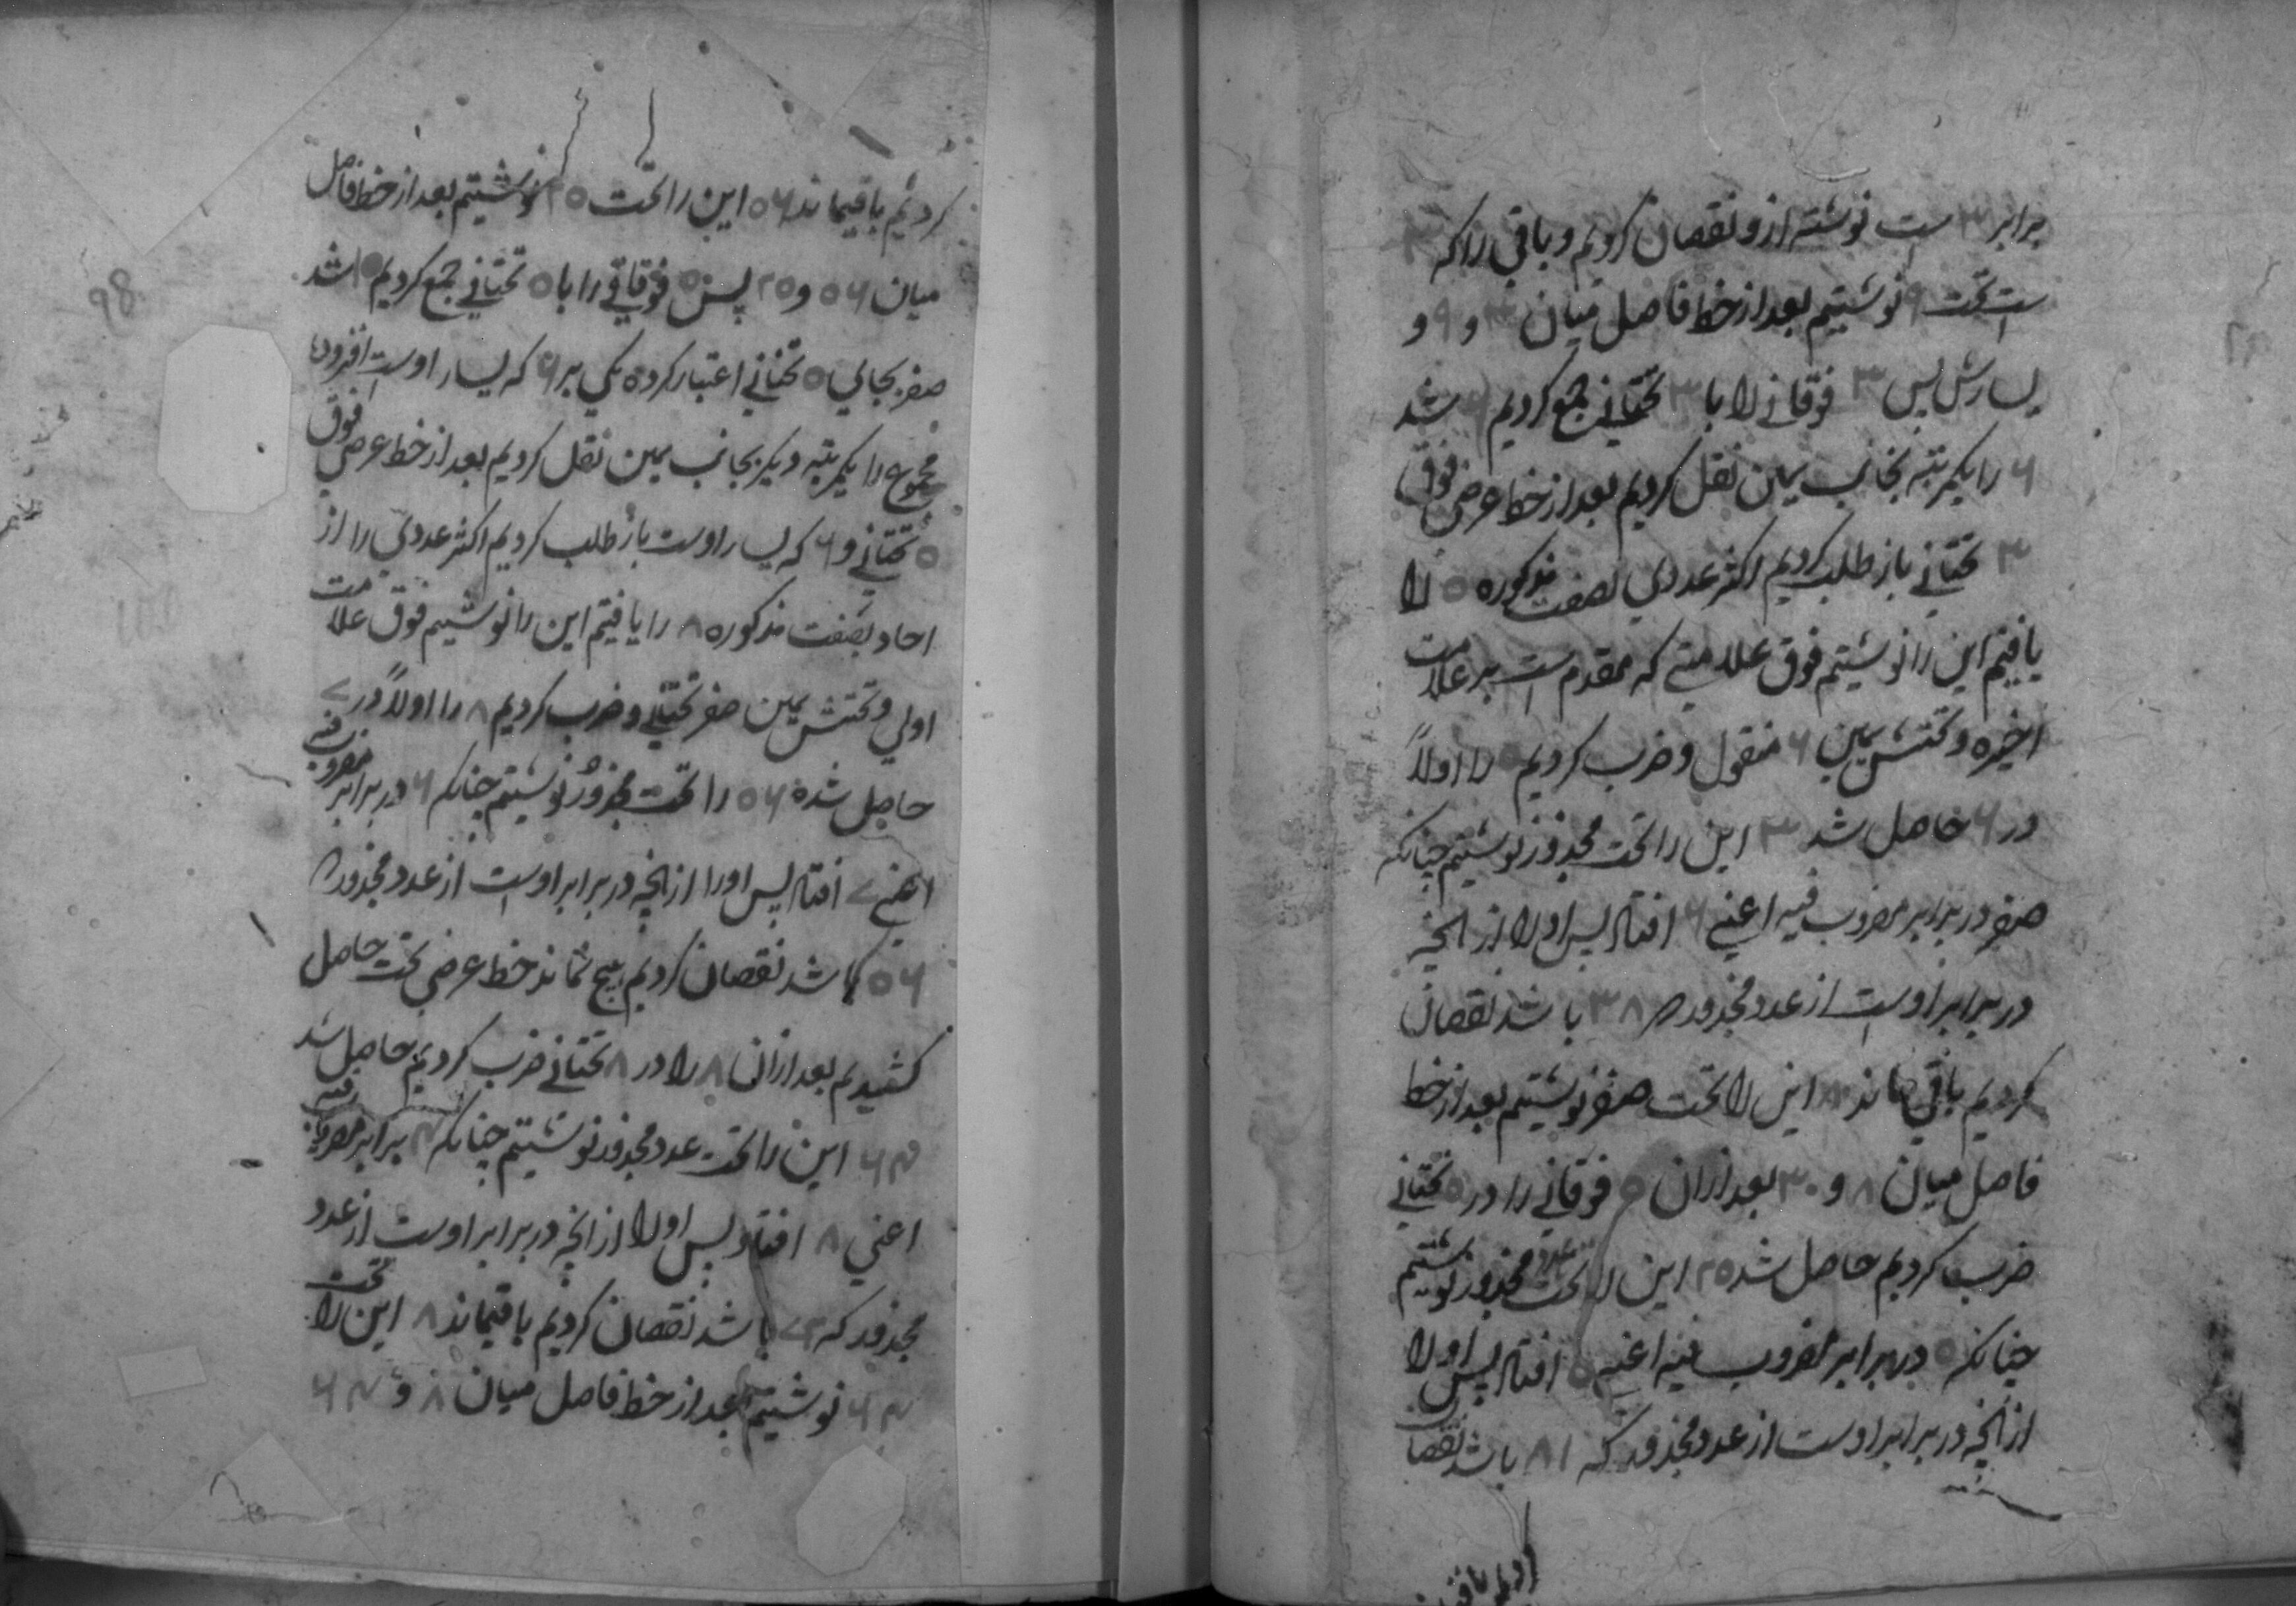 برابر ۳ است نوشته ازو نقصان کردیم و باقی را که ۳
است تحت ۹ نوشتیم بعد از خط فاصل میان ۳ و ۹ و
یسارش پس ۳ فوقانی را با ۳ تحتانی جمع کردیم ۶ شد
۶ را یکمرتبه بجانب یمین نقل کردیم بعد از خط عرضی فوق
۳ تحتانی باز طلب کردیم اکثر عددی بصفت مذکوره ۵ را
یافتیم این را نوشتیم فوق علامتی که مقدم است بر علامت
اخیره و تحتش یمین ۶ منقول و ضرب کردیم ۵ را اولاً
در ۶ حاصل شد ۳۰ این را تحت مجذور نوشتیم چنانکه
صفر در برابر مضروب فیه اعنی ۶ افتاد پس او را از آنچه
در برابر اوست از عدد مجذور که ۳۸ باشد نقصان
کردیم باقی ماند ۸ این را تحت صفر نوشتیم بعد از خط
فاصل میان ۸ و ۳۰ بعد ازان ۵ فوقانی را در ۵ تحتانی
ضرب کردیم حاصل شد ۲۵ این را تحت عدد مجذور نوشتیم
چنانکه ۵ در برابر مضروب فیه اعنی ۵ افتاد پس او را
از آنچه در برابر اوست از عدد مجذور که ۸۱ باشد نقصان
کردیم باقیماند
کردیم باقیماند ۵۶ این را تحت ۲۵ نوشتیم بعد از خط فاصل
میان ۵۶ و ۲۵ پس ۵ فوقانی را با ۵ تحتانی جمع کردیم ۱۰ شد
صفر بجای ۵ تحتانی اعتبار کرده یکی بر ۶ که یسار اوست افزوده
مجموع را یکمرتبه دیگر بجانب یمین نقل کردیم بعد از خط عرضی فوق
۵ تحتانی و ۶ که یسار اوست باز طلب کردیم اکثر عددی را از
احاد بصفت مذکوره ۸ را یافتیم این را نوشتیم فوق علامت
اولی و تحتش یمین صفر تحتانی و ضرب کردیم ۸ را اولاً در ۷
حاصل شد ۵۶ را تحت مجذور نوشتیم چنانکه ۶ در برابر مضروب فیه
اعنی ۷ افتاد پس او را از آنچه در برابر اوست از عدد مجذور که
۵۶ باشد نقصان کردیم هیچ نماند خط عرضی تحت حاصل
کشیدیم بعد ازان ۸ را در ۸ تحتانی ضرب کردیم حاصل شد
۶۴ این را تحت عدد مجذور نوشتیم چنانکه ۴ برابر مضروب فیه
اعنی ۸ افتاد پس او را از آنچه در برابر اوست از عدد
مجذور که ۷۲ باشد نقصان کردیم باقیماند ۸ این را تحت
۶۴ نوشتیم بعد از خط فاصل میان ۸ و ۶۴